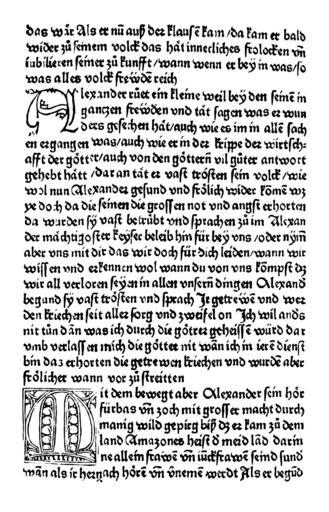 das wår Als er nū auß der klausen kam /da kam er bald
wider zů seinem volck das hät innecliches frolocken vn̄
iubilieren seiner zů kunfft / wann wenn er bey in was / so
was alles volck frewdē reich
Alexander růet ein kleine weil bey den seinē in
gantzen frewden vnd tät sagen was er wun
ders gesehen hät / auch wie es im in allē sach
en ergangen was / auch wie er in der krippe der wirtsch
afft der götter / auch von den göttern vil gůter antwort
gehebt hått / dar an tåt er vast trösten sein volck / wie
wol nun Alexander gesund vnd frölich wider komē wz
ye doch da die seinen die grossen not vnd angst erhorten
da wurden sy vast betrübt vnd sprachen zů im Alexan
der måchtigoster keyser beleib hin für bey vns / oder nym̄
aber vns mit dir das wir doch für dich leiden / wann wir
wissen vnd erkennen wol wann du von vns kömpst dz
wir all verloren seyen in allen vnsern dingen Alexand̄
begund sy vast trösten vnd sprach Ir getrewē vnd wer
den kriechen seit aller sorg vnd zweifel on Ich wil anders
nit tůn dān was ich durch die götter geheissen würd dar
vmb verlassen mich die götter nit wann ich in ierē dienst
bin da z erhorten die getrewen kriechen vnd wurdē aber
frölicher wann vor zů streitten
Mit dem bewegt aber Alexander sein hör
fürbas vn̄ zoch mit grosser macht durch
manig wild gepirg biß dz er kam zů dem
land Amazones heist dz meid lād darin
ne allein frawē vn̄ iückfrawē seind sund
wān als ir hernach hörē vn̄ vernemē werdt Als er begūd